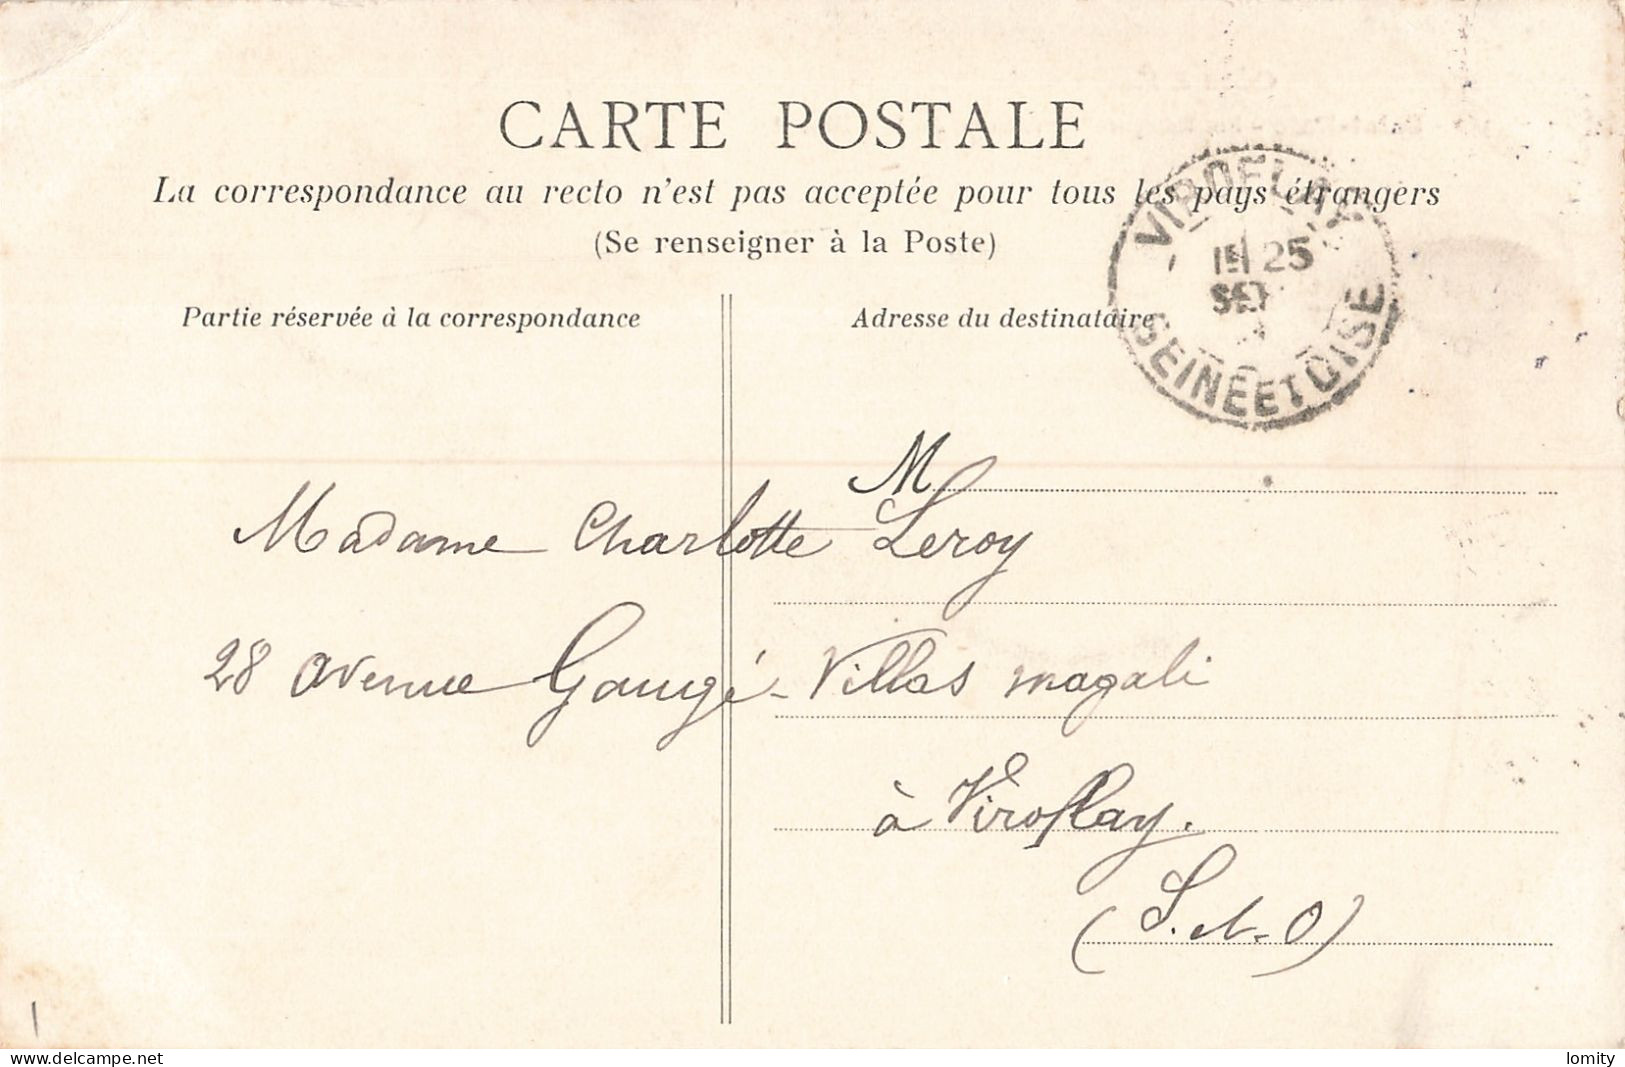 CARTE POSTALE
La correspondance au recto n'est pas acceptée pour tous les pays étrangers
(Se renseigner à la Poste)
Partie réservée à la correspondance
Adresse du destinataire
VIROFLAY
25
SEINE ET OISE
M
Madame Charlotte Leroy
28 avenue Gaugé - Villas magali
à Viroflay.
(S. et-O)
www.delcampe.net
lomity